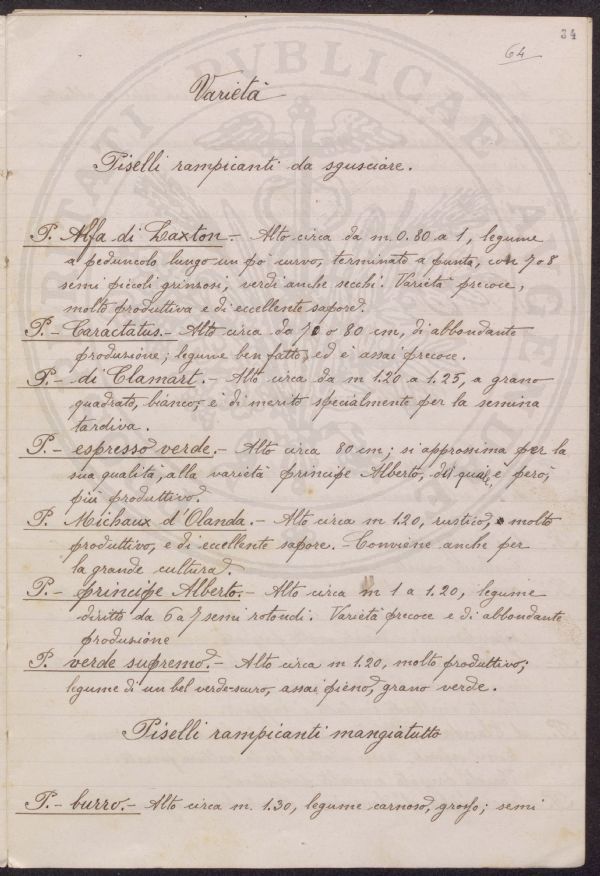 34
64
Varietà
Piselli rampicanti da sgusciare.
P. Alfa di Laxton. - Alto circa da m. 0.80 a 1, legume
a peduncolo lungo un po' curvo, terminato a punta, con 7 o 8
semi piccoli grinzosi, verdi anche secchi. Varietà precoce,
molto produttiva e di eccellente sapore.
P. - Caractatus. - Alto circa da 70 o 80 cm, di abbondante
produzione; legume ben fatto, ed è assai precoce.
P. - di Clamart. - Alto circa da m 1.20 a 1.25, a grano
quadrato, bianco, e di merito specialmente per la semina
tardiva.
P. - espresso verde. - Alto circa 80 cm; si approssima per la
sua qualità, alla varietà principe Alberto, del quale, è però,
più produttivo.
P. Michaux d'Olanda. - Alto circa m 1.20, rustico, molto
produttivo, e di eccellente sapore. - Conviene anche per
la grande cultura.
P. - principe Alberto. - Alto circa m 1 a 1.20, legume
diritto da 6 a 7 semi rotondi. Varietà precoce e di abbondante
produzione
P. verde supremo. - Alto circa m 1.20, molto produttivo;
legume di un bel verde-scuro, assai pieno, grano verde.
Piselli rampicanti mangiatutto
P. - burro. - Alto circa m. 1.30, legume carnoso, grosso; semi